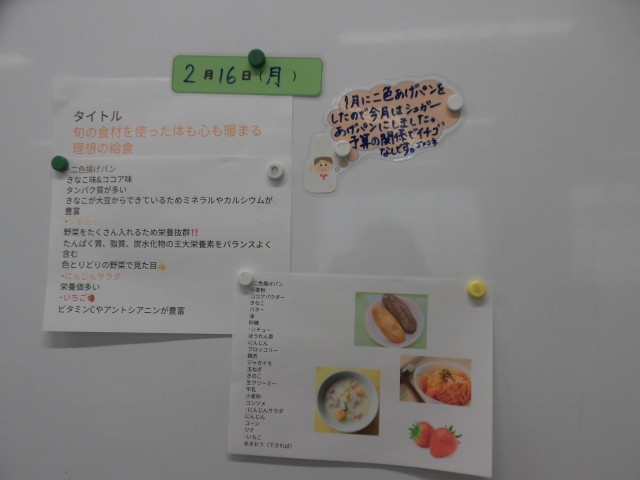 2月16日(月)
1月に二色あげパンを
したので今月はシュガー
あげパンにしました。
予算の関係でイチゴ
なしです。
タイトル
旬の食材を使った体も心も暖まる
理想の給食
二色揚げパン
きなこ味&ココア味
タンパク質が多い
きなこが大豆からできているためミネラルやカルシウムが
豊富
・シチュー
野菜をたくさん入れるため栄養抜群‼️
たんぱく質、脂質、炭水化物の王大栄養素をバランスよく
含む
色とりどりの野菜で見た目👍
・にんじんサラダ
栄養価多い
・いちご🍓
ビタミンCやアントシアニンが豊富
二色揚げパン
小麦粉
ココアパウダー
きなこ
バター
油
砂糖
・シチュー
ほうれん草
にんじん
ブロッコリー
鶏肉
ジャガイモ
玉ねぎ
きのこ
生クリーミー
牛乳
小麦粉
コンソメ
・にんじんサラダ
にんじん
コーン
ツナ
・いちご
あまおう（できれば）